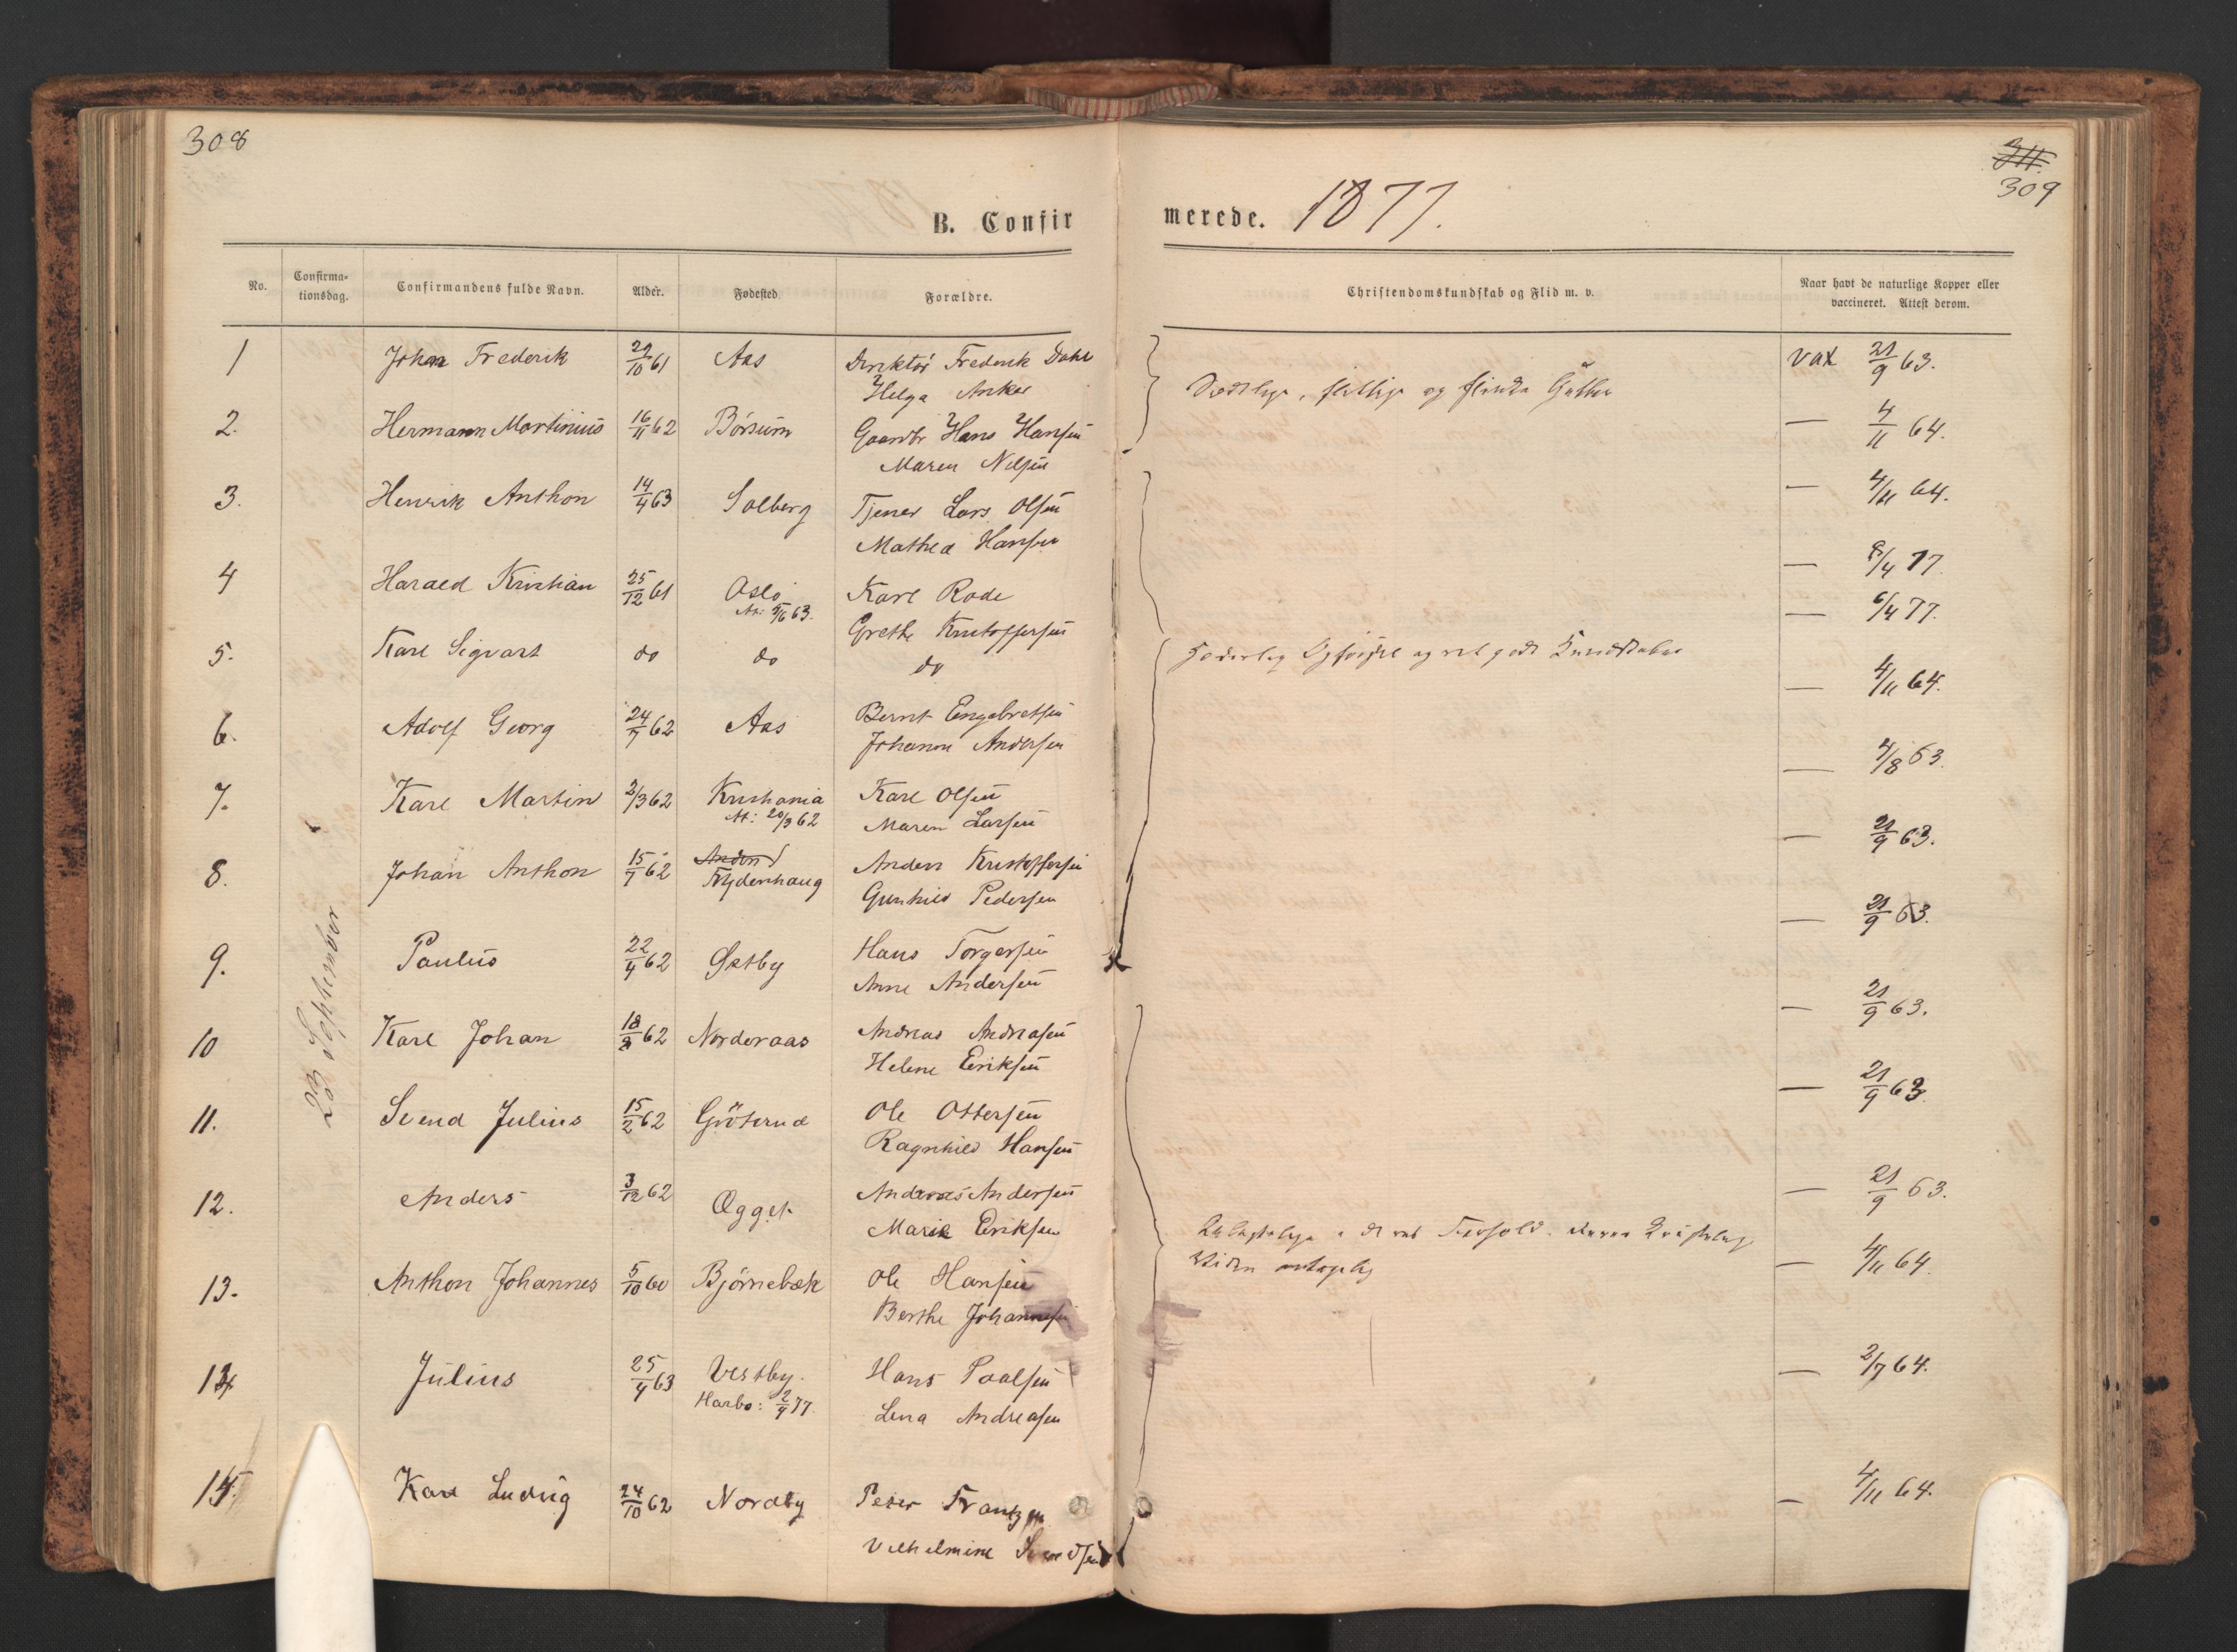 308
309
B. Confirmerede. 1877.
No. Confirma-tionsdag. Confirmandens fulde Navn. Alder. Fødested. Forældre. Christendomskundskab og Flid m. v. Naar havt de naturlige Kopper eller vaccineret. Attest derom.
23 September
1 Johan Frederik 29/10 61 Aas Direktör Frederik Dahl vax 21/9 63.
Helga Anker
flittige og flinke Gutter
2. Hermann Martinius 16/11 62 Börsum Gaardbr Hans Hansen — 4/11 64.
Maren Nilsen
3. Henrik Anthon 14/4 63 Solberg Tjener Lars Olsen — 4/11 64.
Mathea Hansen
4 Harald Kristian 25/12 61 Oslo Karl Rode — 8/4 77
At: 5/6 63. Grethe Kristoffersen
5. Karl Sigvart do do do — 6/4 77.
Hæderlig Opförsel og ret gode Kundskaber
6. Adolf Georg 24/7 62 Aas Bernt Engebretsen — 4/11 64.
Johanne Andersen
7. Karl Martin 2/3 62 Kristiania Karl Olsen — 4/8 63.
At: 20/3 62 Maren Larsen
8. Johan Anthon 15/7 62 Frydenhaug Anders Kristoffersen — 21/9 63.
Gunhild Pedersen
9. Paulus 22/4 62 Østby Hans Torgersen — 21/9 63.
Anne Andersen
10 Karl Johan 18/3 62 Norderaas Andreas Andreasen — 21/9 63.
Helene Eriksen
11. Svend Julius 15/2 62 Gröterud Ole Ottersen — 21/9 63.
Ragnhild Hansen
12. Anders 3/12 62 Ogget Andreas Andersen — 21/9 63.
Marie Eriksen
13. Anthon Johannes 5/10 60 Björnebæk Ole Hansen — 4/11 64.
Berthe Johannesen
Viden antagelig
14 Julius 25/4 63 Vestby. Hans Paalsen — 2/7 64.
Harbo: 2/9 77. Lena Andreasen
15. Karl Ludvig 24/10 62 Nordby Peter Frantzen — 4/11 64.
Vilhelmine Svendsen